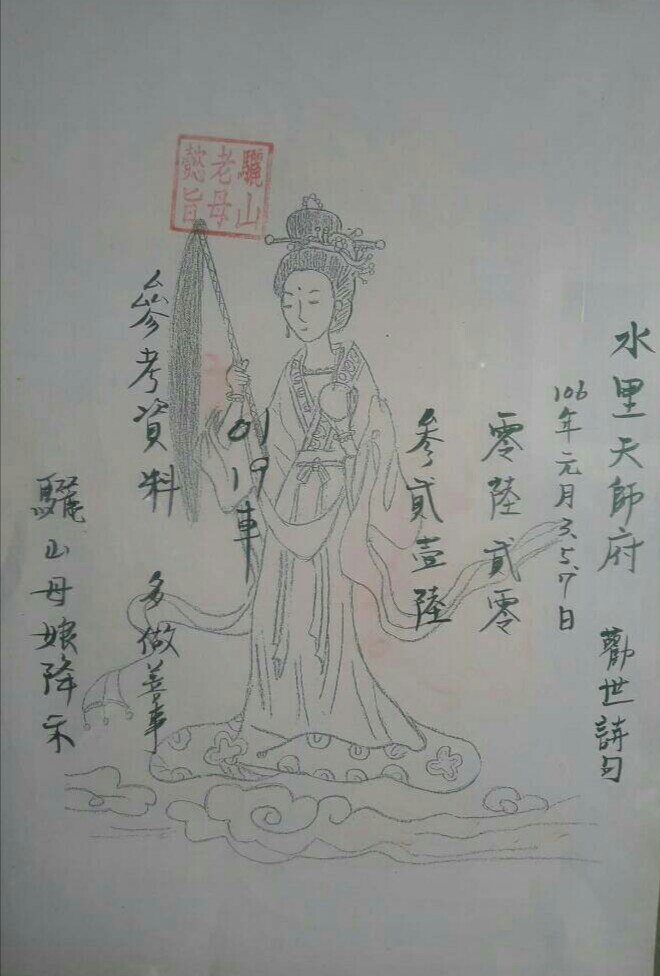 驪山
老母
懿旨
水里天師府 勸世詩句
106年元月3.5.7日
零陸貳零
參貳壹陸
01 19車
參考資料 多做善事
驪山母娘降示